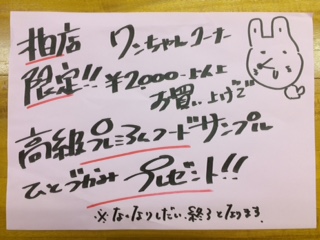 柏店 ワンちゃんコーナー
限定!! ¥2,000-以上
お買い上げで
高級プレミアムフードサンプル
ひとづかみ プレゼント!!
※なくなりしだい、終了となります。